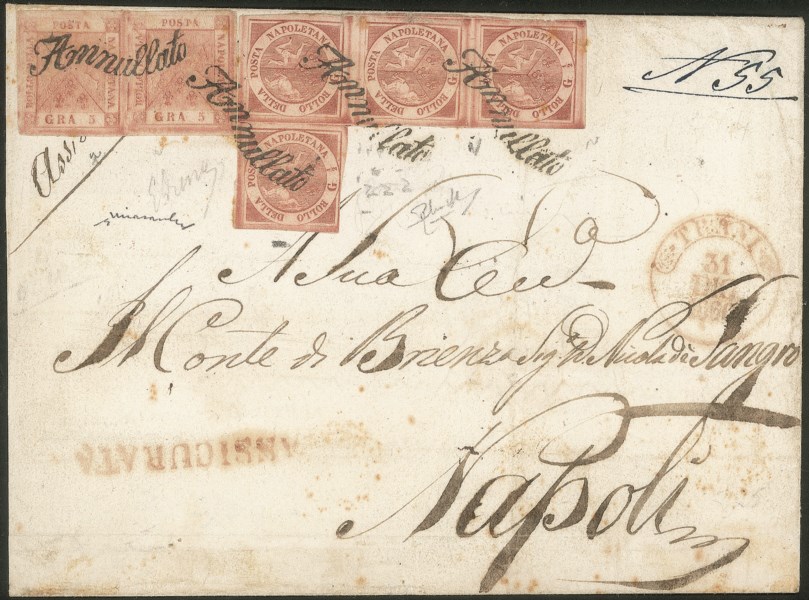 POSTA NAPOLETANA GRA 5 BOLLO DELLA
POSTA NAPOLETANA GRA 5 BOLLO DELLA
BOLLO DELLA POSTA NAPOLETANA G 1
BOLLO DELLA POSTA NAPOLETANA G 1
BOLLO DELLA POSTA NAPOLETANA G 1
BOLLO DELLA POSTA NAPOLETANA G 1
Annullato
Annullato
Annullato
Annullato
N 55
TRANI
31
A Sua
Il Conte di Brienza Sig. D. Nicola di Sangro
ASSICURATA
Napoli